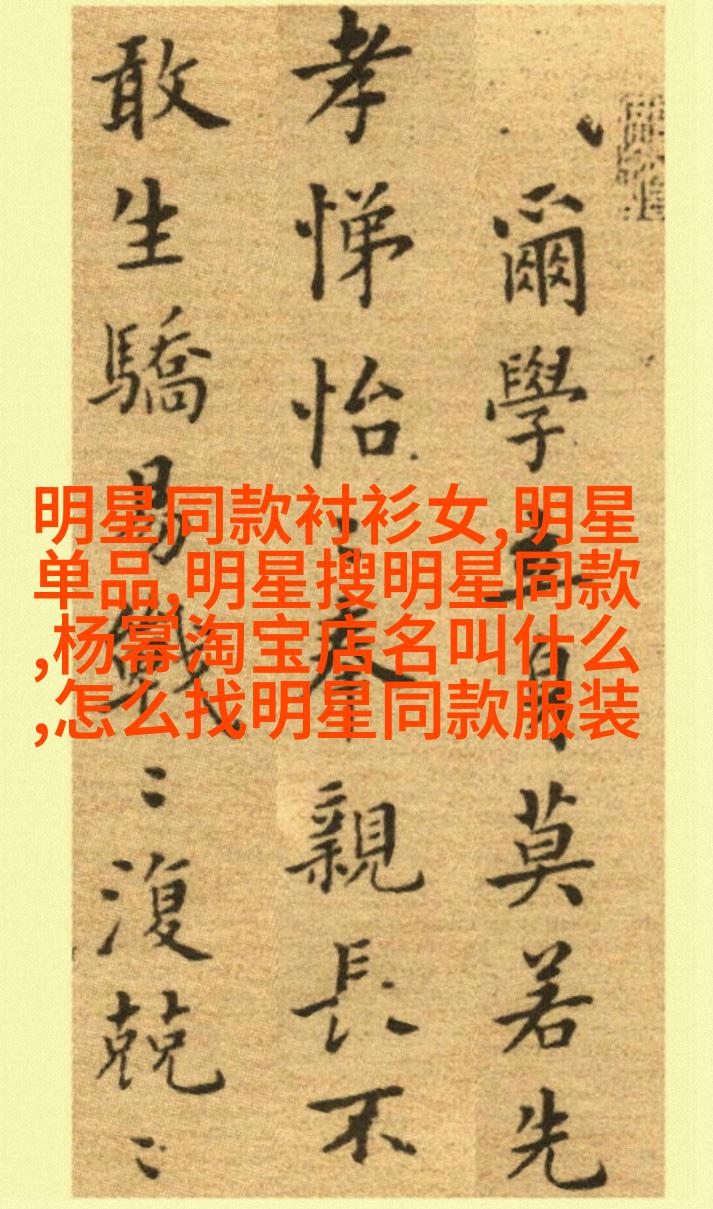 爾學立身莫若先
孝悌怡〻奉親長不
敢生驕易戰〻復兢〻
明星同款衬衫女,明星
单品,明星搜明星同款
,杨幂淘宝店名叫什么
,怎么找明星同款服装